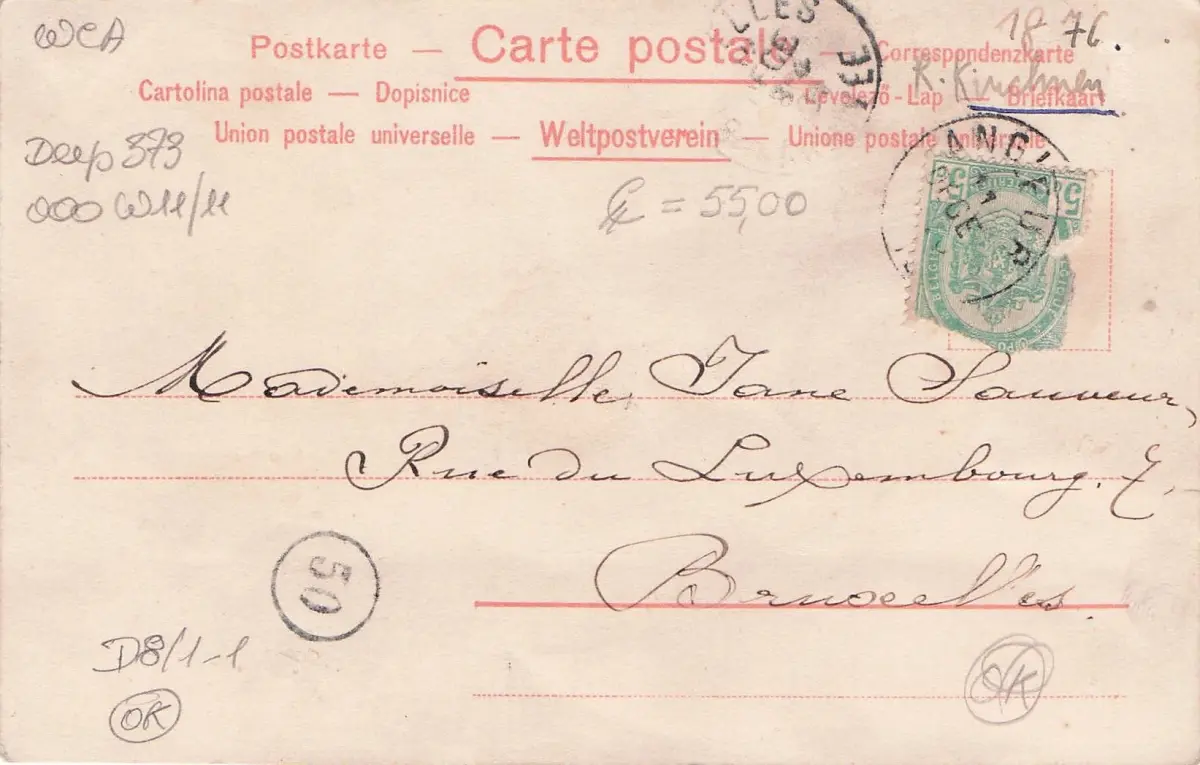 WCA
18 76.
Postkarte — Carte postale — Correspondenzkarte
R. Kirchner
Cartolina postale — Dopisnice Levelező-Lap — Briefkaart
Union postale universelle — Weltpostverein — Unione postale universale
Deep 373
000 W11/11
= 55,00
LLES
ANGLEUR
5 5
Mademoiselle Jane Sauveur,
Rue du Luxembourg. 7.
Bruxelles
50
D8/1-1
OK
OK